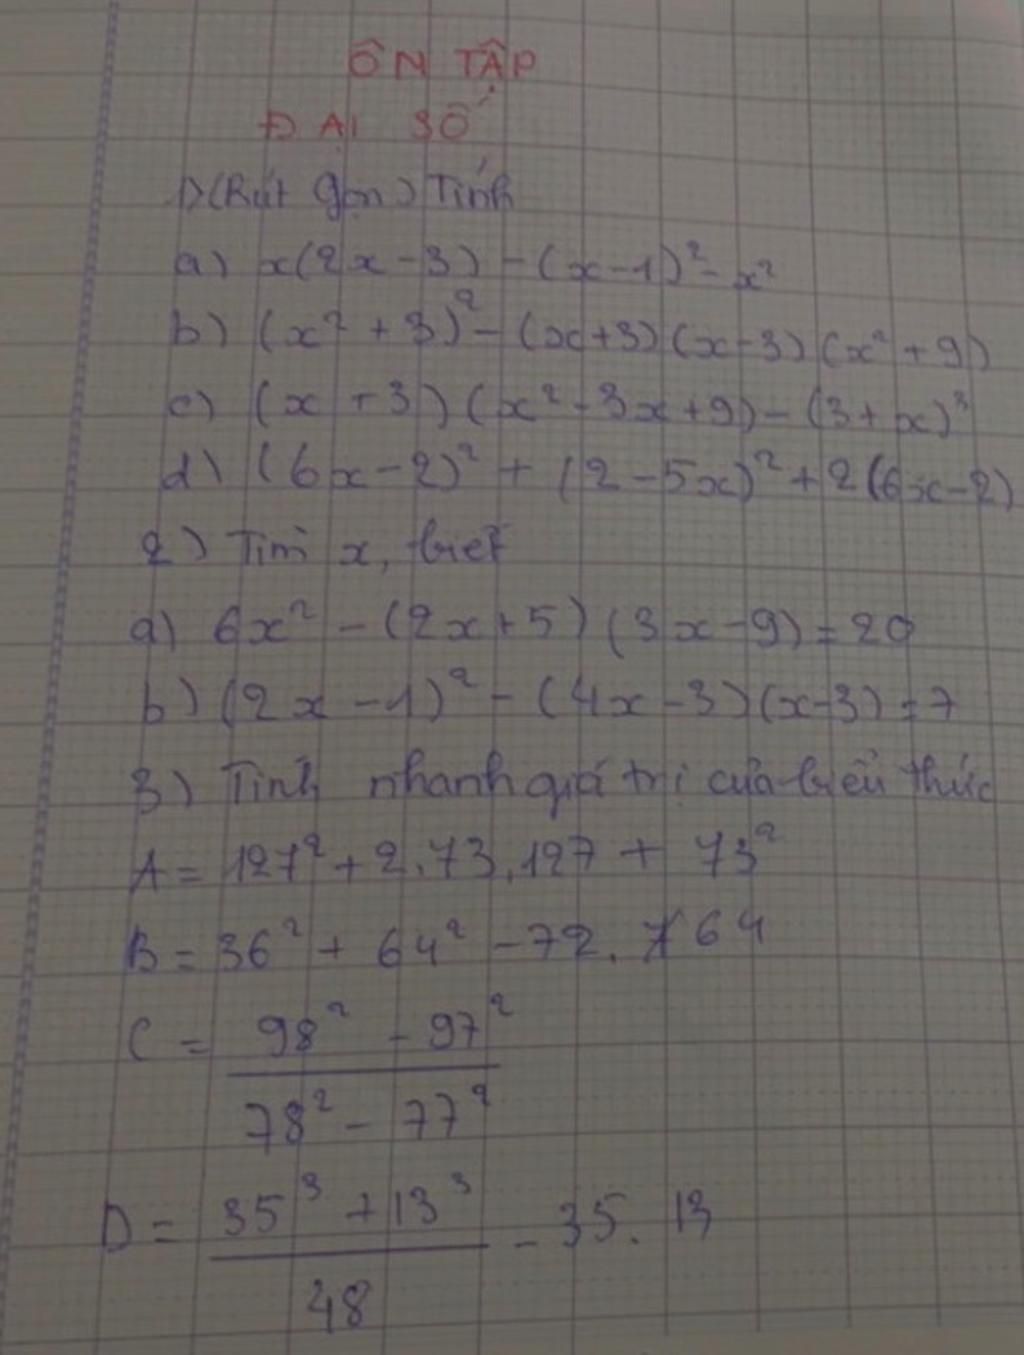 ÔN TẬP
ĐẠI SỐ
1) (Rút gọn) Tính
a) x(2x-3) - (x-1)² - x²
b) (x² + 3)² - (x+3)(x-3)(x²+9)
c) (x + 3)(x² - 3x + 9) - (3 + x)³
d) (6x - 2)² + (2 - 5x)² + 2(6x-2)
2) Tìm x, biết
a) 6x² - (2x + 5)(3x - 9) = 20
b) (2x - 1)² - (4x - 3)(x-3) = 7
3) Tính nhanh giá trị của biểu thức
A = 127² + 2.73.127 + 73²
B = 36² + 64² - 72. 64
C = \frac{98² - 97²}{78² - 77²}
D = \frac{35³ + 13³}{48} - 35. 13